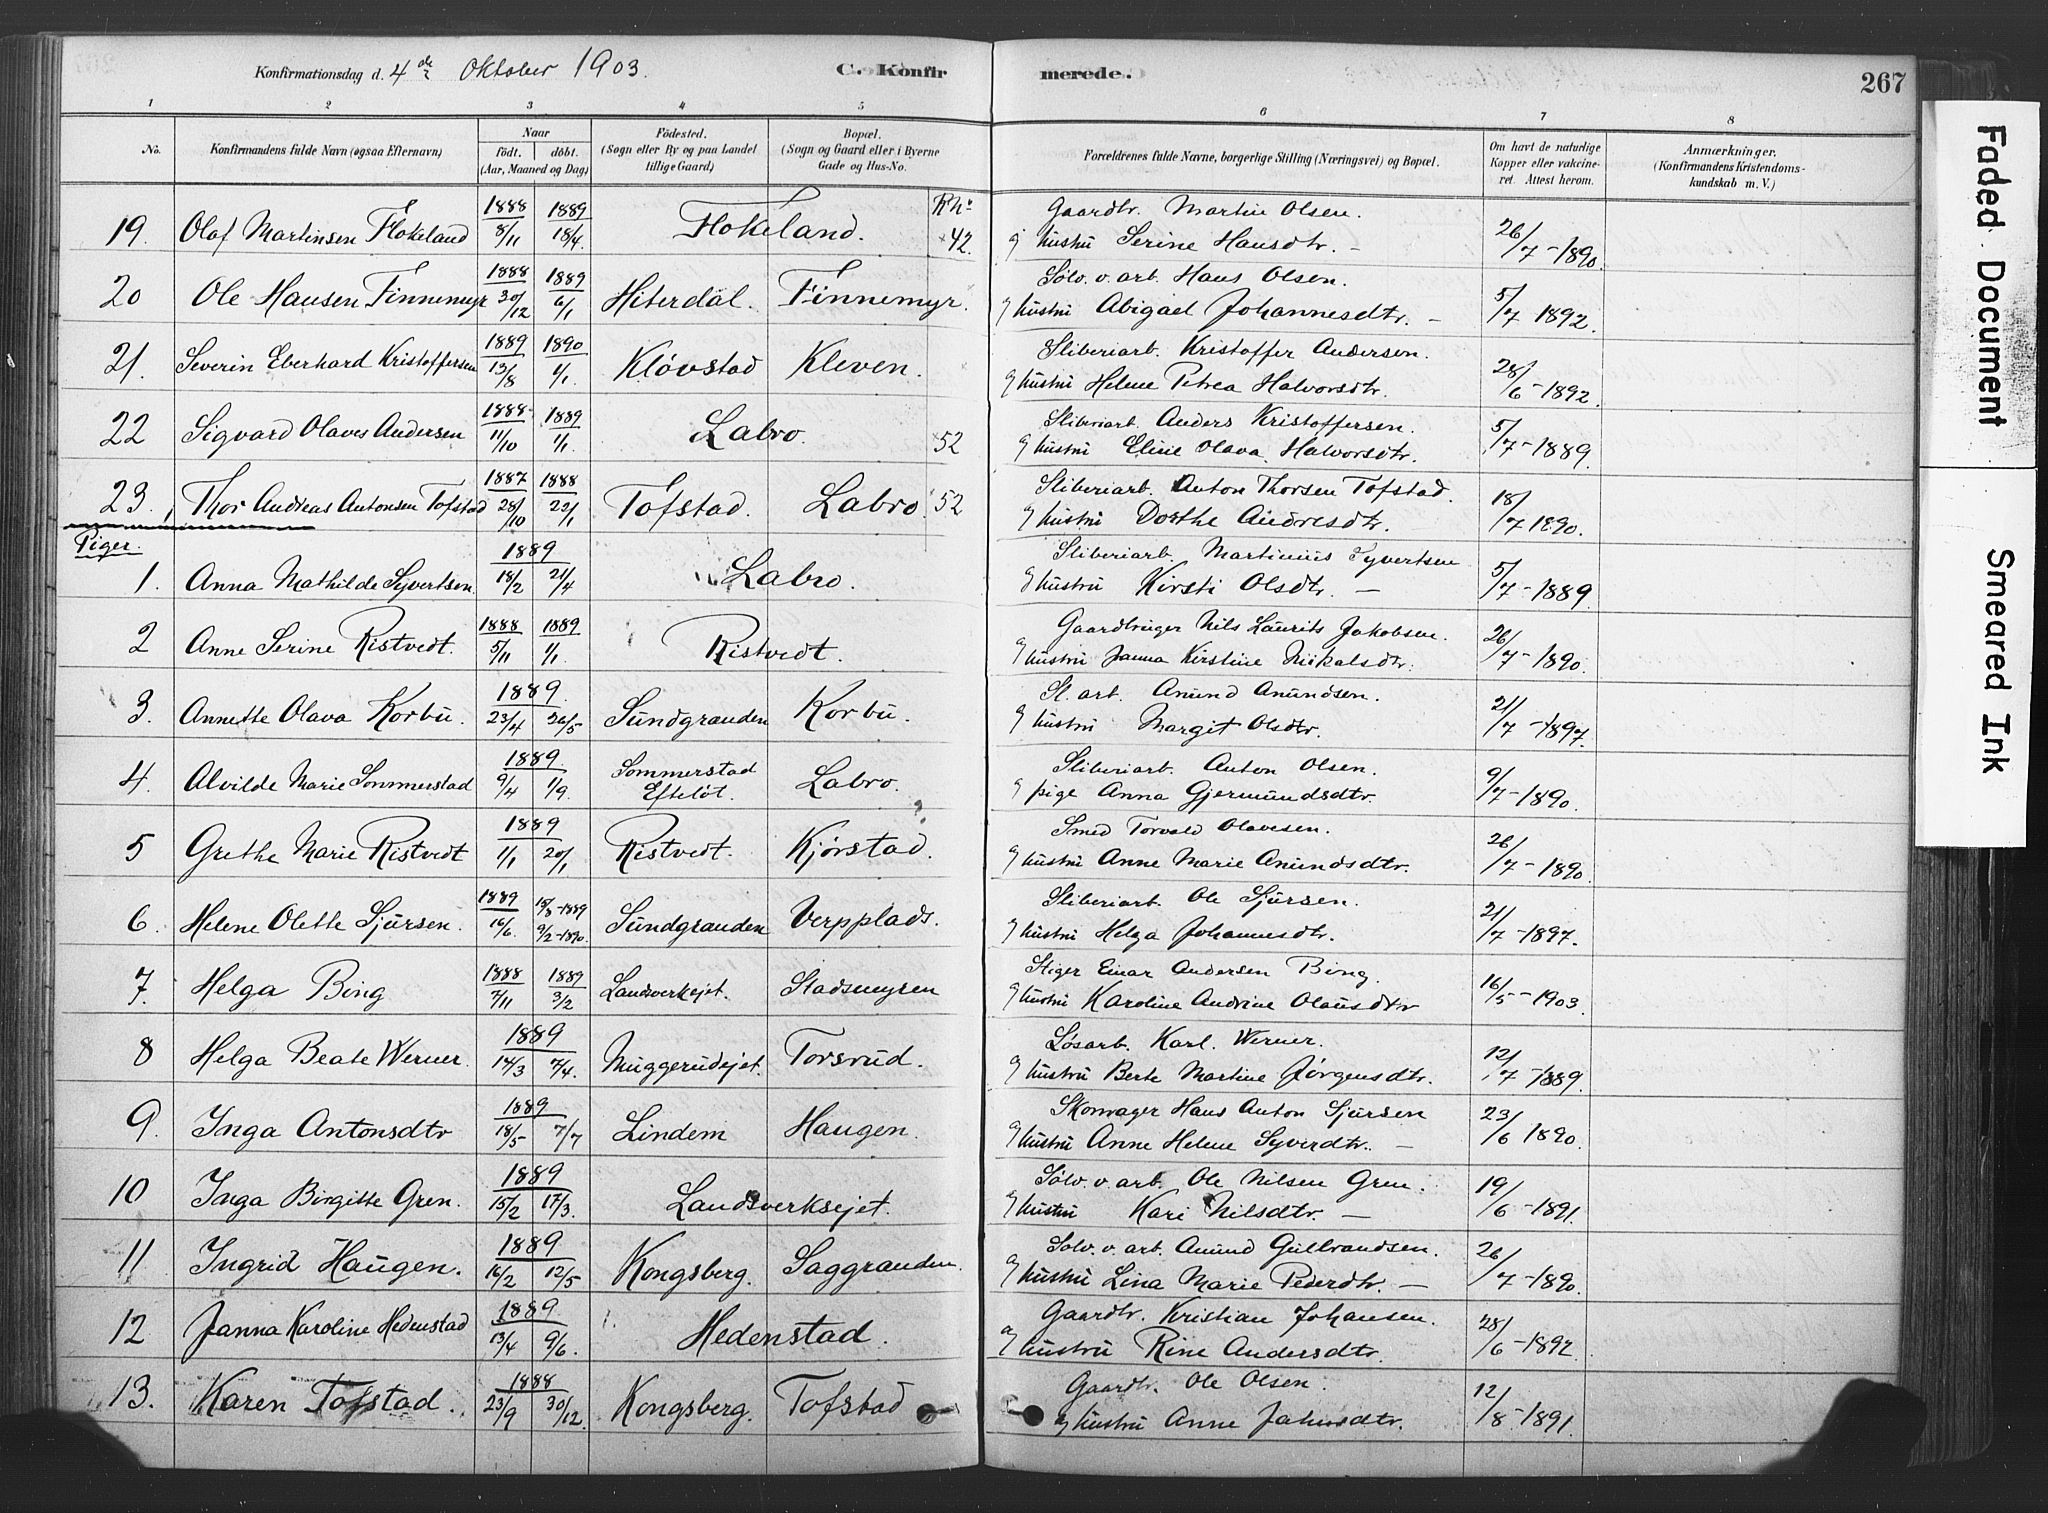 Konfirmationsdag d. 4de Oktober 1903. C. Konfirmerede. 267
1 2 3 4 5 6 7 8
No. Konfirmandens fulde Navn (ogsaa Efternavn) Naar født. døbt. (Aar, Maaned og Dag) Fødested. (Sogn eller By og paa Landet tillige Gaard) Bopæl. (Sogn og Gaard eller i Byerne Gade og Hus-No. Forældrenes fulde Navne, borgerlige Stilling (Næringsvei) og Bopæl. Om havt de naturlige Kopper eller vakcineret. Attest herom. Anmærkninger. (Konfirmandens Kristendomskundskab m. V.)
19. Olaf Martinsen Flokeland 1888 8/11 1889 18/4. Flokeland. 42. Gaardbr. Martin Olsen.
og hustru Serine Hansdtr. – 26/7-1890.
20 Ole Hansen Finnemyr 1888 30/12 1889 6/1 Hiterdal. Finnemyr. Sølv. v. arb. Hans Olsen.
og hustru Abigael Johannesdtr. – 5/7 1892.
21. Severin Eberhard Kristoffersen 1889 13/8 1890 1/1. Kløvstad Kleven. Sliberiarb. Kristoffer Andersen.
og hustru Helene Petrea Halvorsdtr. 28/6-1892.
22 Sigvard Olaves Andersen 1888 11/10 1889 1/1 Labro. 52 Sliberiarb. Anders Kristoffersen.
og hustru Eline Olava Halvorsdtr. 5/7-1889.
23. Thor Andreas Antonsen Tofstad 1887 28/10 1888 22/1 Tofstad. Labro 52 Sliberiarb. Anton Thorsen Tofstad.
og hustru Dorthe Andresdtr. 18/7 1890.
Piger.
1. Anna Mathilde Syvertsen. 1889 18/2 21/4 Labro. Sliberiarb. Martinius Syvertsen
og hustru Kirsti Olsdtr. – 5/7-1889.
2 Anne Serine Ristvedt. 1888 5/11 1889 1/1. Ristvedt. Gaardbruger Nils Laurits Jakobsen.
og hustru Janna Kirstine Nikolsdtr. 26/7-1890.
3. Annette Olava Korbu. 1889. 23/4 26/5 Sundgranden Korbu. Sl. arb. Anund Anundsen.
og hustru Margit Olsdtr. 21/7-1897.
4. Alvilde Marie Sommerstad 1889. 9/4 1/9. Sommerstad Efteløt. Labro. Sliberiarb. Anton Olsen.
og pige Anna Gjermundsdtr. 9/7-1890.
5 Grethe Marie Ristvedt 1889 1/1 20/1 Ristvedt. Kjørstad. ? Smed Torvald Olavesen.
og hustru Anne Marie Anundsdtr. 26/7-1890.
6. Helene Olette Sjursen. 1889 16/6. 15/8-1889 9/2-1890. Sundgranden Verpplads. Sliberiarb. Ole Sjursen.
og hustru Helga Johannesdtr. 21/7-1897.
7. Helga Bing 1888 7/11 1889 3/2 Landsverksejet. Stadsmyren Stiger Einar Andersen Bing.
og hustru Karoline Andrine Olausdtr 16/5-1903.
8 Helga Beate Werner. 1889 14/3 7/4. Muggerudejet. Torsrud. Løsarb. Karl. Werner.
og hustru Berte Martine Jørgensdtr. 12/7-1889.
9. Inga Antonsdtr 1889 18/5 7/7 Lindem Haugen. Skomager Hans Anton Sjursen
og hustru Anne Helene Syverdtr. – 23/6 1890.
10 Inga Birgitte Gren. 1889 15/2 17/3. Landsverksejet. Sølv. v. arb. Ole Nilsen Gren.
og hustru Kari Nilsdtr. – 19/6-1891.
11 Ingrid Haugen. 1889 16/2 12/5 Kongsberg. Saggranden. Sølv. v. arb. Anund Gulbrandsen.
og hustru Lina Marie Pederdtr. – 26/7-1890.
12 Janna Karoline Hedenstad 1889 13/4 9/6. Hedenstad. Gaardbr. Kristian Johansen.
og hustru Rine Andersdtr. 28/6-1892.
13. Karen Tofstad. 1888 23/9 30/12. Kongsberg. Tofstad Gaardbr. Ole Olsen.
og hustru Anne Jahnsdtr. 12/8-1891.
Faded Document
Smeared Ink